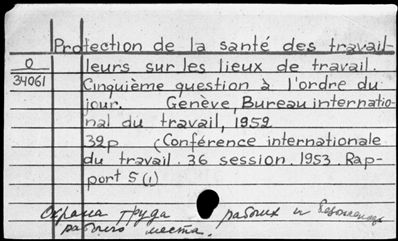 Protection de la santé des travail-
0 leurs sur les lieux de travail.
34061 Cinquième question à l'ordre du
jour. Genève, Bureau internatio-
nal du travail, 1952
39p (Conférence internationale
du travail. 36 session. 1953. Rap-
port 5(1)
Охрана труда рабочих и
рабочего места.